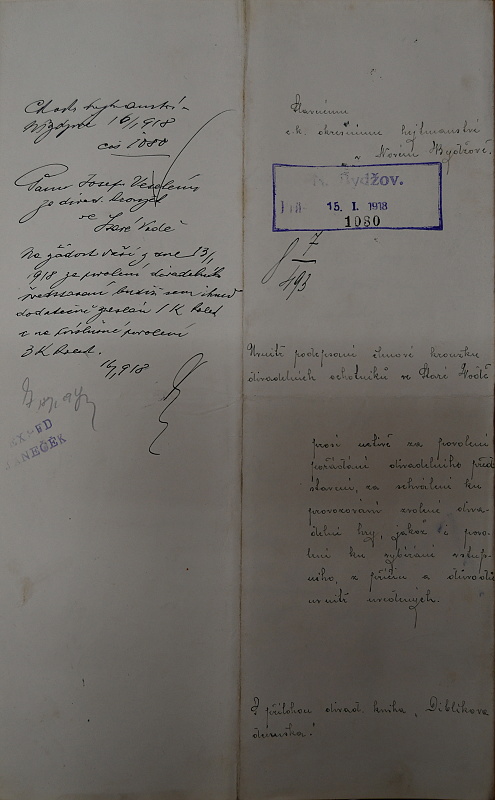 16/1 1918
čís 1080
Panu Josefu Veselému
ve
Staré Vodě
Na žádost Vaši z dne 13/1
1918 za povolení divadelního
představení budiž sem ihned
dodatečně zaslán 1 K kolek
a na povolení
3 K kolek.
16/1 918
EXPED
JANEČEK
Slavnému
c.k. okresnímu hejtmanství
v Novém Bydžově.
N. Bydžov.
15. I. 1918
1080
7
493
Uvnitř podepsaní členové kroužku
divadelních ochotníků ve Staré Vodě
prosí uctivě za povolení
pořádání divadelního před
stavení, za schválení ku
provozování zvolené diva-
delní hry, jakož i povo-
lení ku vybírání vstup-
ného, z příčin a důvodů
uvnitř uvedených.
S přílohou divad. kniha „Diblíkova